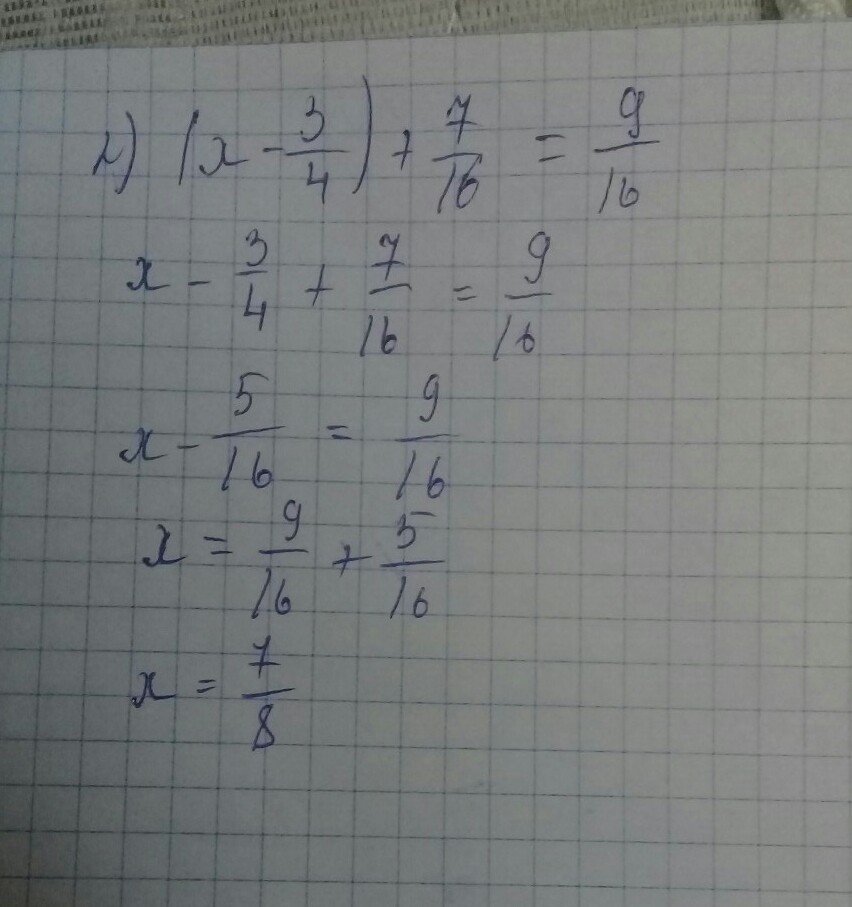 1) (x - 3/4) + 7/16 = 9/16
x - 3/4 + 7/16 = 9/16
x - 5/16 = 9/16
x = 9/16 + 5/16
x = 7/8